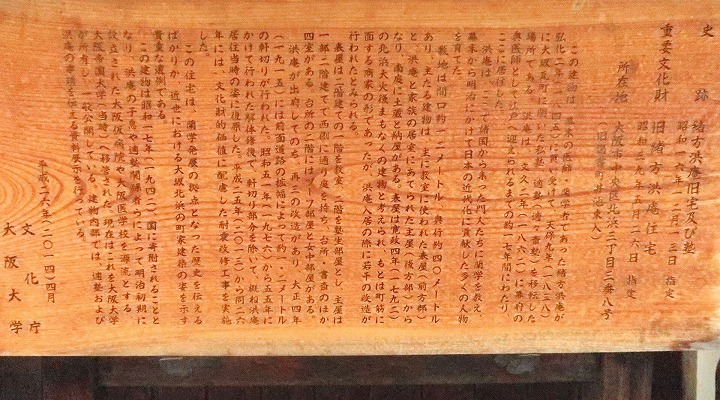 史　跡　緒方洪庵旧宅及び塾
昭和一六年一二月一三日　指定
重要文化財　旧緒方洪庵住宅
昭和三九年五月二六日　指定
所在地　大阪市中央区北浜三丁目三番八号
（旧過書町
東入）
この建物は、幕末の医師・蘭学者であった緒方洪庵が
弘化二年（一八四五）に買い受けて、天保九年（一八三八）
に大坂瓦町に開いた私塾「適塾（適々斎塾）」を移転した
場所である。洪庵は、文久二年（一八六二）に幕府の
奥医師として江戸へ迎えられるまでの約一七年間にわたり、
ここに居住した。
洪庵は、ここで諸国から集った門人たちに蘭学を教え、
幕末から明治にかけて日本の近代化に貢献した多くの人物
を育てた。
敷地は間口約一二メートル、奥行約四〇メートル
あり、主たる建物は、主に教室に使われた表屋（前方部）
と、洪庵と家族の居室にあてられた主屋（後方部）から
なり、南庭に土蔵と納屋がある。表屋は寛政四年（一七九二）
の北浜大火後まもなくの建物と考えられ、もとは町筋に
面する商家の形であったが、洪庵入居の際に若干の改造が
行われたとみられる。
表屋は二階建ての一階を教室、二階を塾生部屋とし、主屋は
一部二階建てで西側に通り庭を持ち、台所・書斎のほか
四室がある。台所の二階にはヅーフ部屋と女中部屋がある。
洪庵が出府してのち、再三の改造があり、大正四年
（一九一五）には前面道路の拡幅によって約一・二メートル
の軒切りが行われた。昭和五一年（一九七六）から五五年に
かけて行われた解体修復で、軒切り部分を除いて、概ね洪庵
居住当時の姿に復原した。平成二五年（二〇一三）から同二六
年には、文化財的価値に配慮した耐震改修工事を実施
した。
この住宅は、蘭学発展の拠点となった歴史を伝える
ばかりか、近世における大坂北浜の町家建築の姿を示す
貴重な遺例である。
この建物は昭和一七年（一九四二）国に寄附されることと
なり、洪庵の子息や適塾関係者らによって明治初期に
設立された大阪仮病院や大阪医学校を源流とする
大阪帝国大学（当時）へ移管された。現在はこれを大阪大学
が所有し、一般公開している。建物内部では、適塾および
洪庵の事績を伝える資料展示を行っている。
平成二六年（二〇一四）四月
文化庁
大阪大学